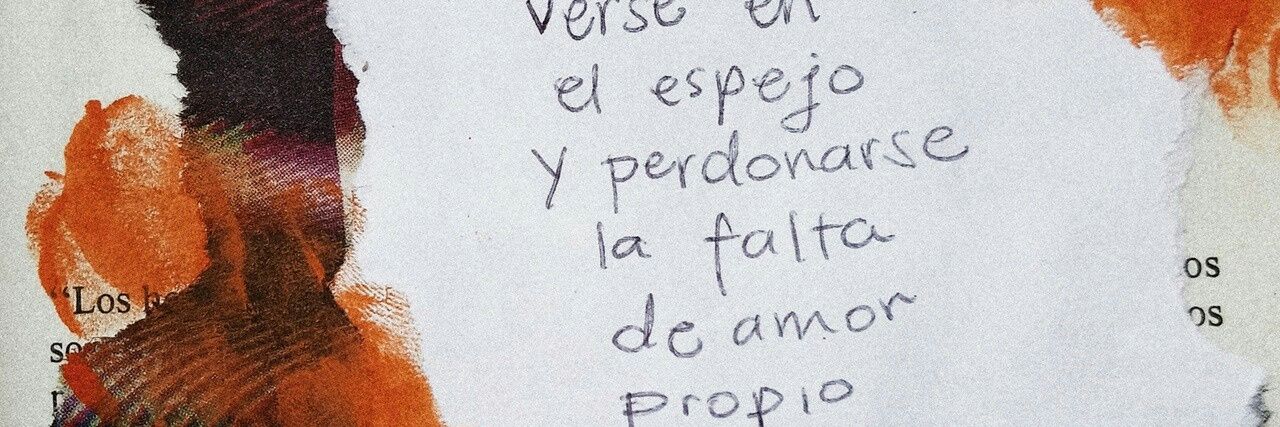 verse en
el espejo
y perdonarse
la falta
de amor
propio
"Los
os
os